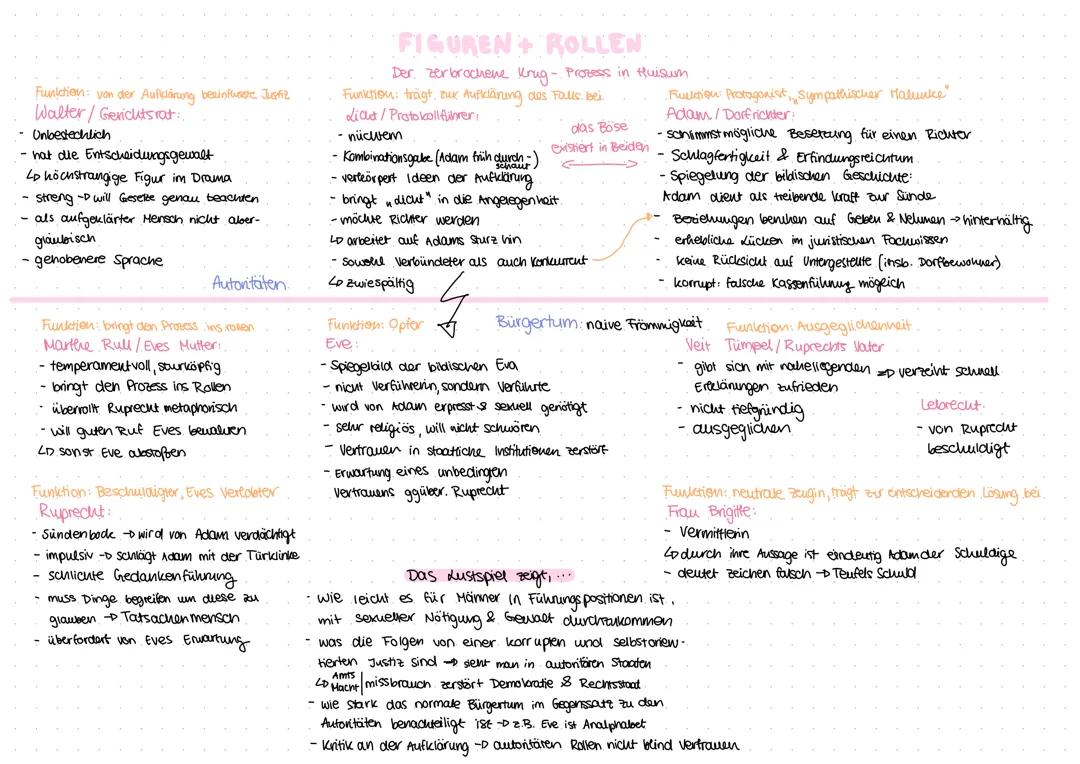 FIGUREN + ROLLEN
Der zerbrochene Krug - Prozess in Huisum
Funktion: von der Aufklärung beeinflusste Justiz
Walter / Gerichtsrat:
- Unbestechlich
- hat die Entscheidungsgewalt
↳ höchstrangige Figur im Drama
- streng → will Gesetze genau beachten
- als aufgeklärter Mensch nicht aber-
gläubisch
- gehobenere Sprache
Autoritäten
Funktion: trägt zur Aufklärung des Falls bei
Licht / Protokollführer:
- nüchtern
- Kombinationsgabe (Adam früh durch-)
schaut
- verkörpert Ideen der Aufklärung
- bringt "Licht" in die Angelegenheit
- möchte Richter werden
↳ arbeitet auf Adams Sturz hin
- sowohl Verbündeter als auch Konkurrent
↳ zwiespältig
das Böse
existiert in Beiden
Funktion: Protagonist, "Sympathischer Halunke"
Adam / Dorfrichter:
- schlimmstmögliche Besetzung für einen Richter
- Schlagfertigkeit & Erfindungsreichtum
- Spiegelung der biblischen Geschichte:
Adam dient als treibende Kraft zur Sünde
- Beziehungen beruhen auf Geben & Nehmen → hinterhältig
- erhebliche Lücken im juristischen Fachwissen
- keine Rücksicht auf Untergestellte (insb. Dorfbewohner)
- korrupt: falsche Kassenführung möglich
Bürgertum: naive Frömmigkeit
Funktion: bringt den Prozess ins rollen
Marthe Rull / Eves Mutter:
- temperamentvoll, sturköpfig
- bringt den Prozess ins Rollen
- überrollt Ruprecht metaphorisch
- will guten Ruf Eves bewahren
↳ sonst Eve abstoßen
Funktion: Opfer
Eve:
- Spiegelbild der biblischen Eva
- nicht Verführerin, sondern Verführte
- wird von Adam erpresst & sexuell genötigt
- sehr religiös, will nicht schwören
- Vertrauen in staatliche Institutionen zerstört
- Erwartung eines unbedingten
Vertrauens ggüber. Ruprecht
Funktion: Ausgeglichenheit
Veit Tümpel / Ruprechts Vater
- gibt sich mit naheliegenden ⇒ verzeiht schnell
Erklärungen zufrieden
- nicht tiefgründig
- ausgeglichen
Lebrecht:
- von Ruprecht
beschuldigt
Funktion: Beschuldigter, Eves Verlobter
Ruprecht:
- Sündenbock → wird von Adam verdächtigt
- impulsiv → schlägt Adam mit der Türklinke
- schlichte Gedankenführung
- muss Dinge begreifen um diese zu
glauben → Tatsachenmensch
- überfordert von Eves Erwartung
Funktion: neutrale Zeugin, trägt zur entscheidenden Lösung bei
Frau Brigitte:
- Vermittlerin
↳ durch ihre Aussage ist eindeutig Adam der Schuldige
- deutet Zeichen falsch → Teufels Schuld
Das Lustspiel zeigt, ...
- wie leicht es für Männer in Führungspositionen ist,
mit sexueller Nötigung & Gewalt durchzukommen
- was die Folgen von einer korrupten und selbstorien-
tierten Justiz sind → sieht man in autoritären Staaten
↳ Amts
Macht | missbrauch zerstört Demokratie & Rechtsstaat
- wie stark das normale Bürgertum im Gegenssatz zu den
Autoritäten benachteiligt ist → z.B. Eve ist Analphabet
- Kritik an der Aufklärung → autoritären Rollen nicht blind vertrauen